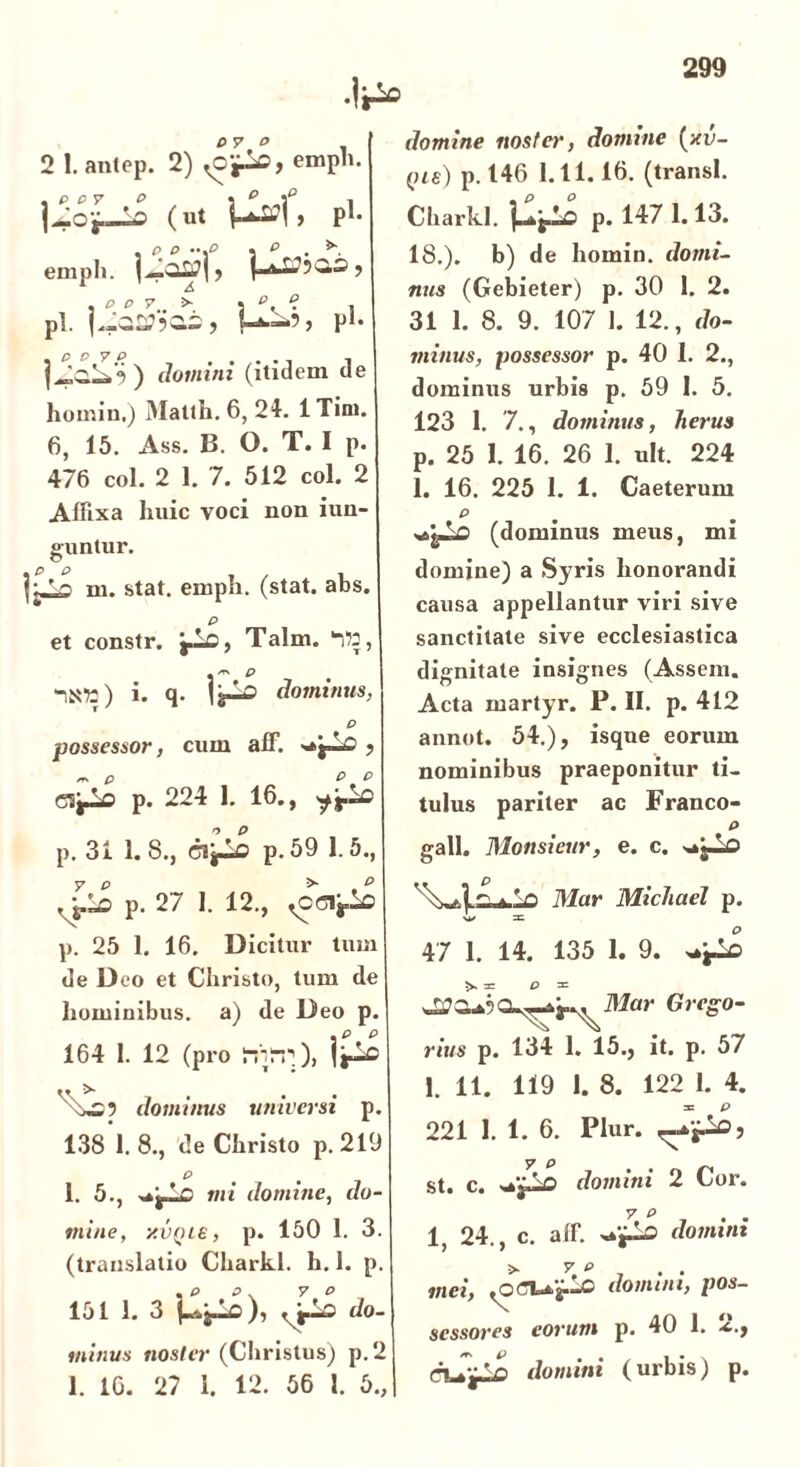 299
.ܡܪܐ
2 l. antep. 2) ܡܪܘܢ, emph.
(ut pl.
emph.
pl. pl.
) domini (itidem de
homin.) Matth. 6, 24. 1 Tim.
6, 15. Ass. B. O. T. I p.
476 col. 2 l. 7. 512 col. 2
Affixa huic voci non iun-
guntur.
ܡܪܐ m. stat. emph. (stat. abs.
et constr. ܡܪ, Talm. מר,
מאר) i. q. ܡܪܐ dominus,
possessor, cum aff. ܡܪܝ,
ܡܪܗ p. 224 l. 16., ܡܪܟ
p. 31 l. 8., ܡܪܗ p. 59 l. 5.,
ܡܪܢ p. 27 l. 12., ܡܪܗܘܢ
p. 25 l. 16. Dicitur tum
de Deo et Christo, tum de
hominibus. a) de Deo p.
164 l. 12 (pro יהוה), ܡܪܐ
ܕܟܠ dominus universi p.
138 l. 8., de Christo p. 219
l. 5., ܡܪܝ mi domine, do-
mine, κύριε, p. 150 l. 3.
(translatio Charkl. h. l. p.
151 l. 3 ܡܪܝܐ), ܡܪܢ do-
minus noster (Christus) p. 2
l. 16. 27 l. 12. 56 l. 5.,
domine noster, domine (κύ-
ριε) p. 146 l. 11. 16. (transl.
Charkl. ܡܪܝܐ p. 147 l. 13.
18.). b) de homin. domi-
nus (Gebieter) p. 30 l. 2.
31 l. 8. 9. 107 l. 12., do-
minus, possessor p. 40 l. 2.,
dominus urbis p. 59 l. 5.
123 l. 7., dominus, herus
p. 25 l. 16. 26 l. ult. 224
l. 16. 225 l. 1. Caeterum
ܡܪܝ (dominus meus, mi
domine) a Syris honorandi
causa appellantur viri sive
sanctitate sive ecclesiastica
dignitate insignes (Assem.
Acta martyr. P. II. p. 412
annot. 54.), isque eorum
nominibus praeponitur ti-
tulus pariter ac Franco-
gall. Monsieur, e. c. ܡܪܝ
ܡܝܟܐܝܠ Mar Michael p.
47 l. 14. 135 l. 9. ܡܪܝ
ܓܪܝܓܘܪܝܘܣ Mar Grego-
rius p. 134 l. 15., it. p. 57
l. 11. 119 l. 8. 122 l. 4.
221 l. 1. 6. Plur. ܡܪ̈ܝܢ,
st. c. ܡܪ̈ܝ domini 2 Cor.
1, 24., c. aff. ܡܪ̈ܝ domini
mei, ܡܪ̈ܝܗܘܢ domini, pos-
sessores eorum p. 40 l. 2.,
ܡܪ̈ܝܗ domini (urbis) p.